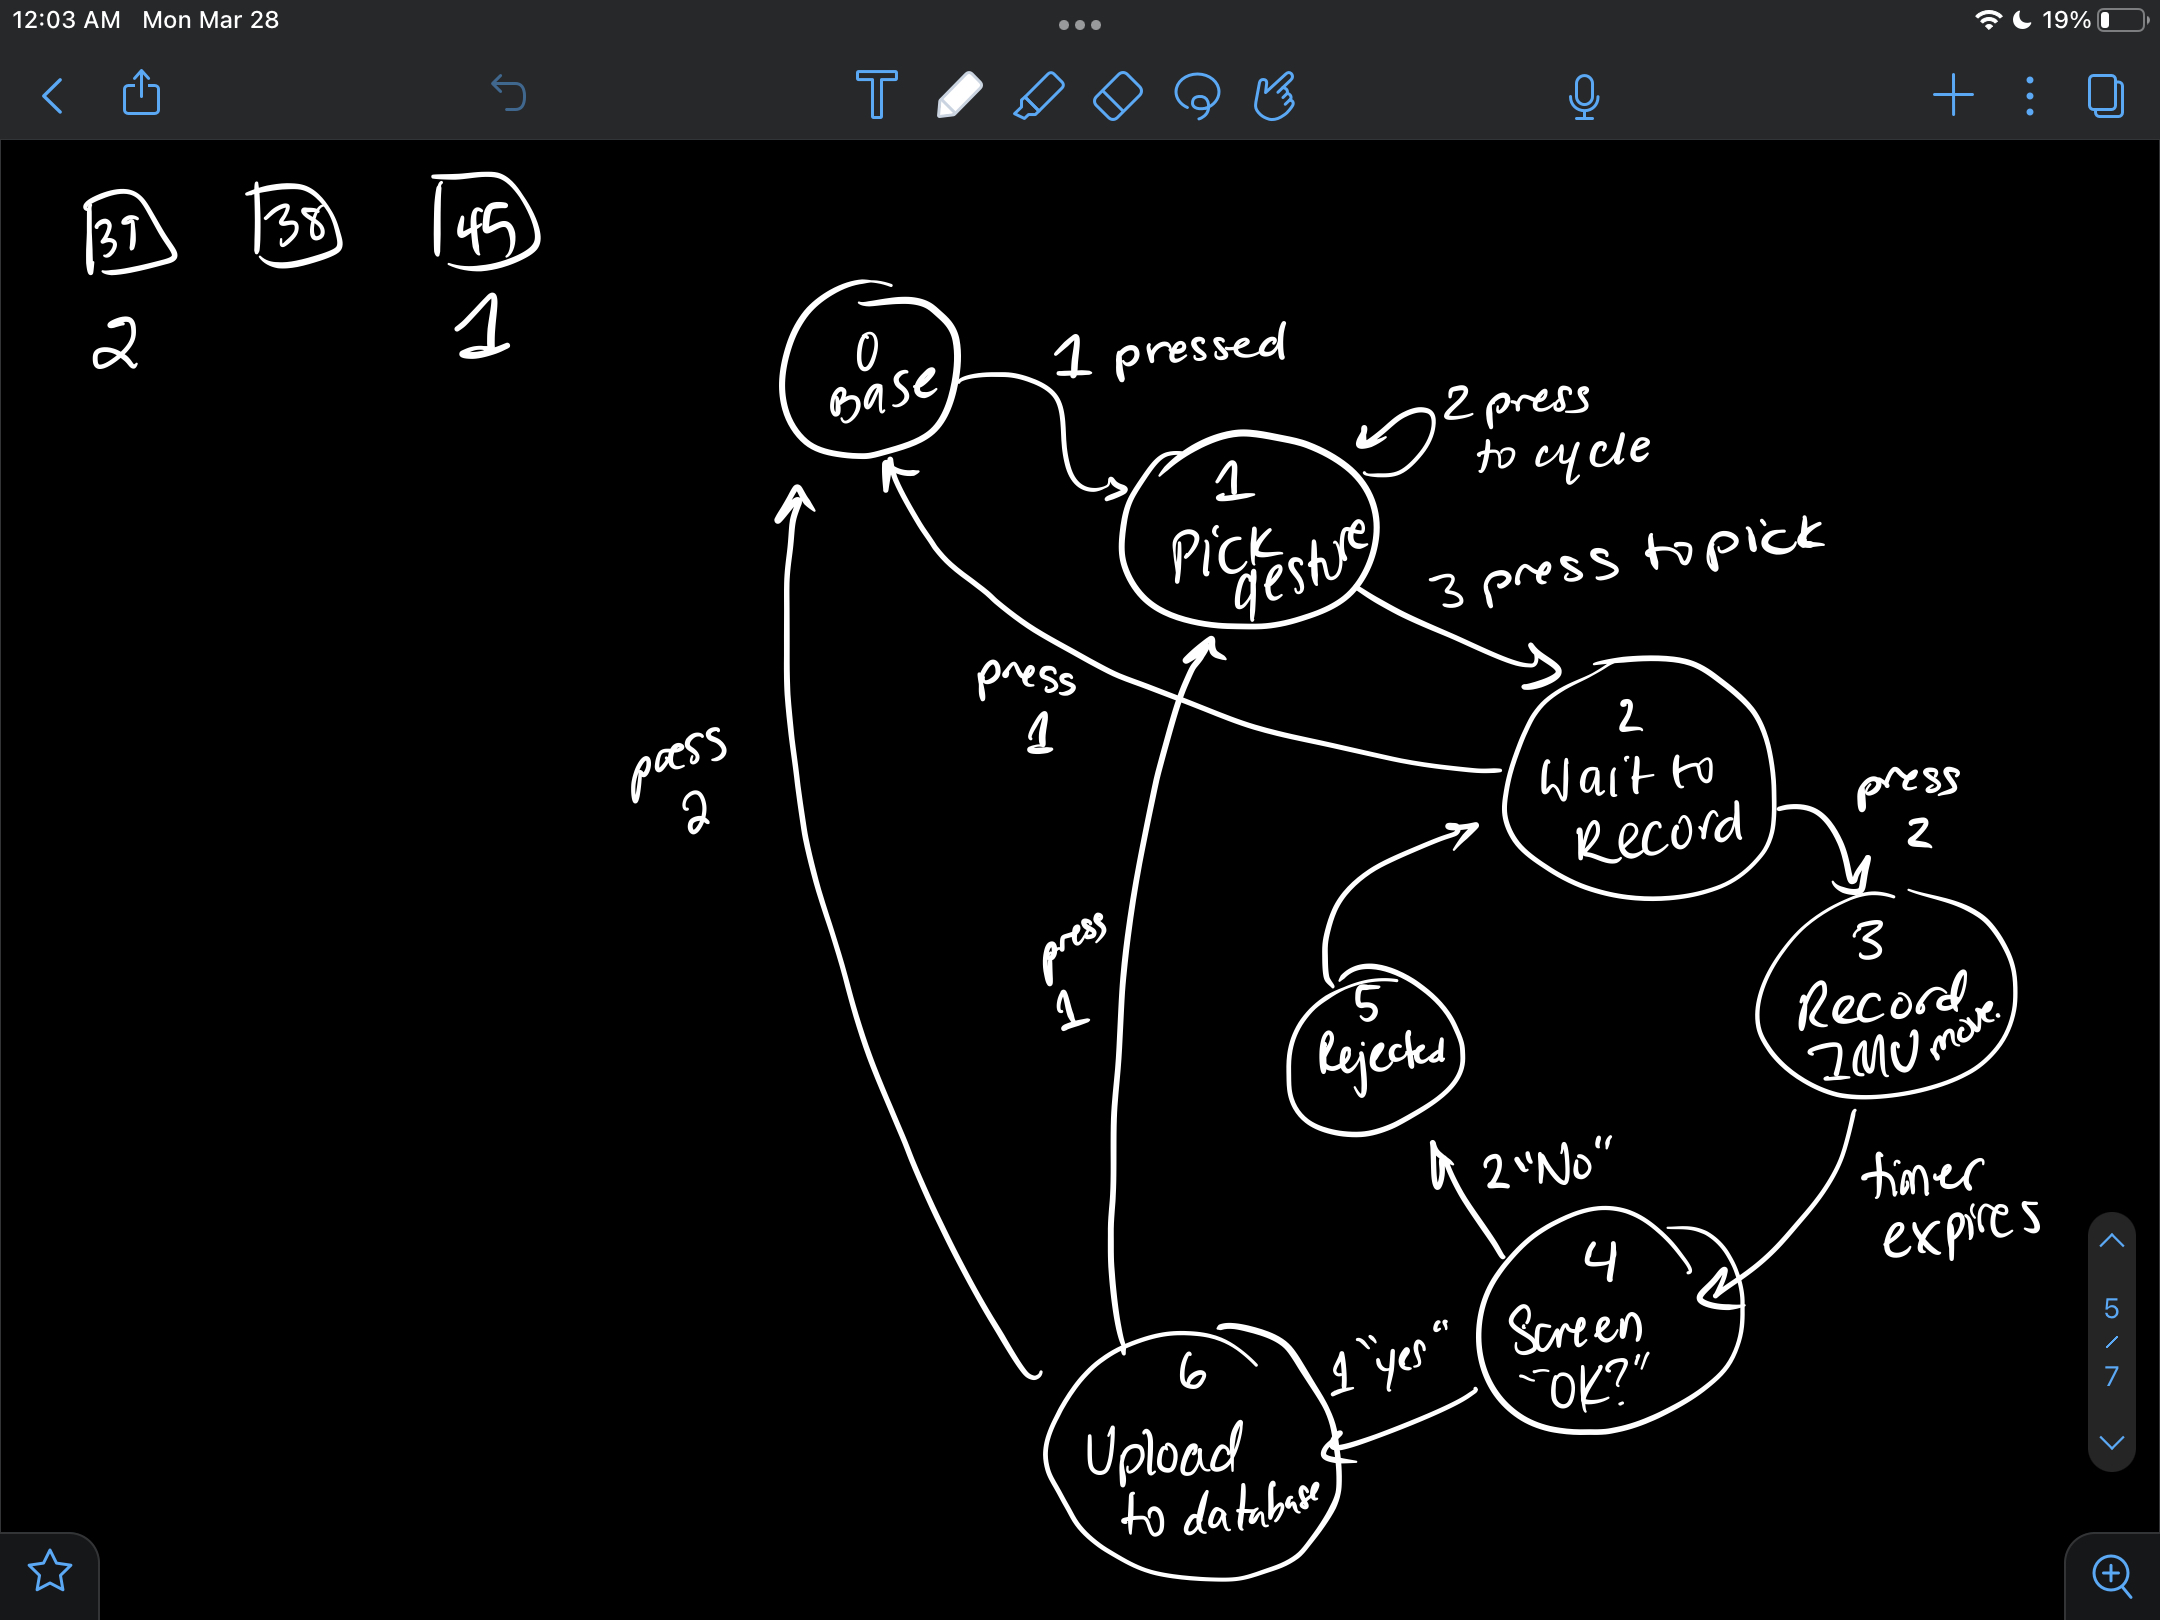 12:03 AM Mon Mar 28
19%
39 38 45
2 1
0
Base
1 pressed
2 press
to cycle
1
Pick
gesture
3 press to pick
press
1
2
Wait to
Record
press
2
press
2
3
Record
IMU move.
press
1
5
Rejected
2 "No"
timer
expires
4
Screen
"OK?"
1 "yes"
6
Upload
to database
5
/
7